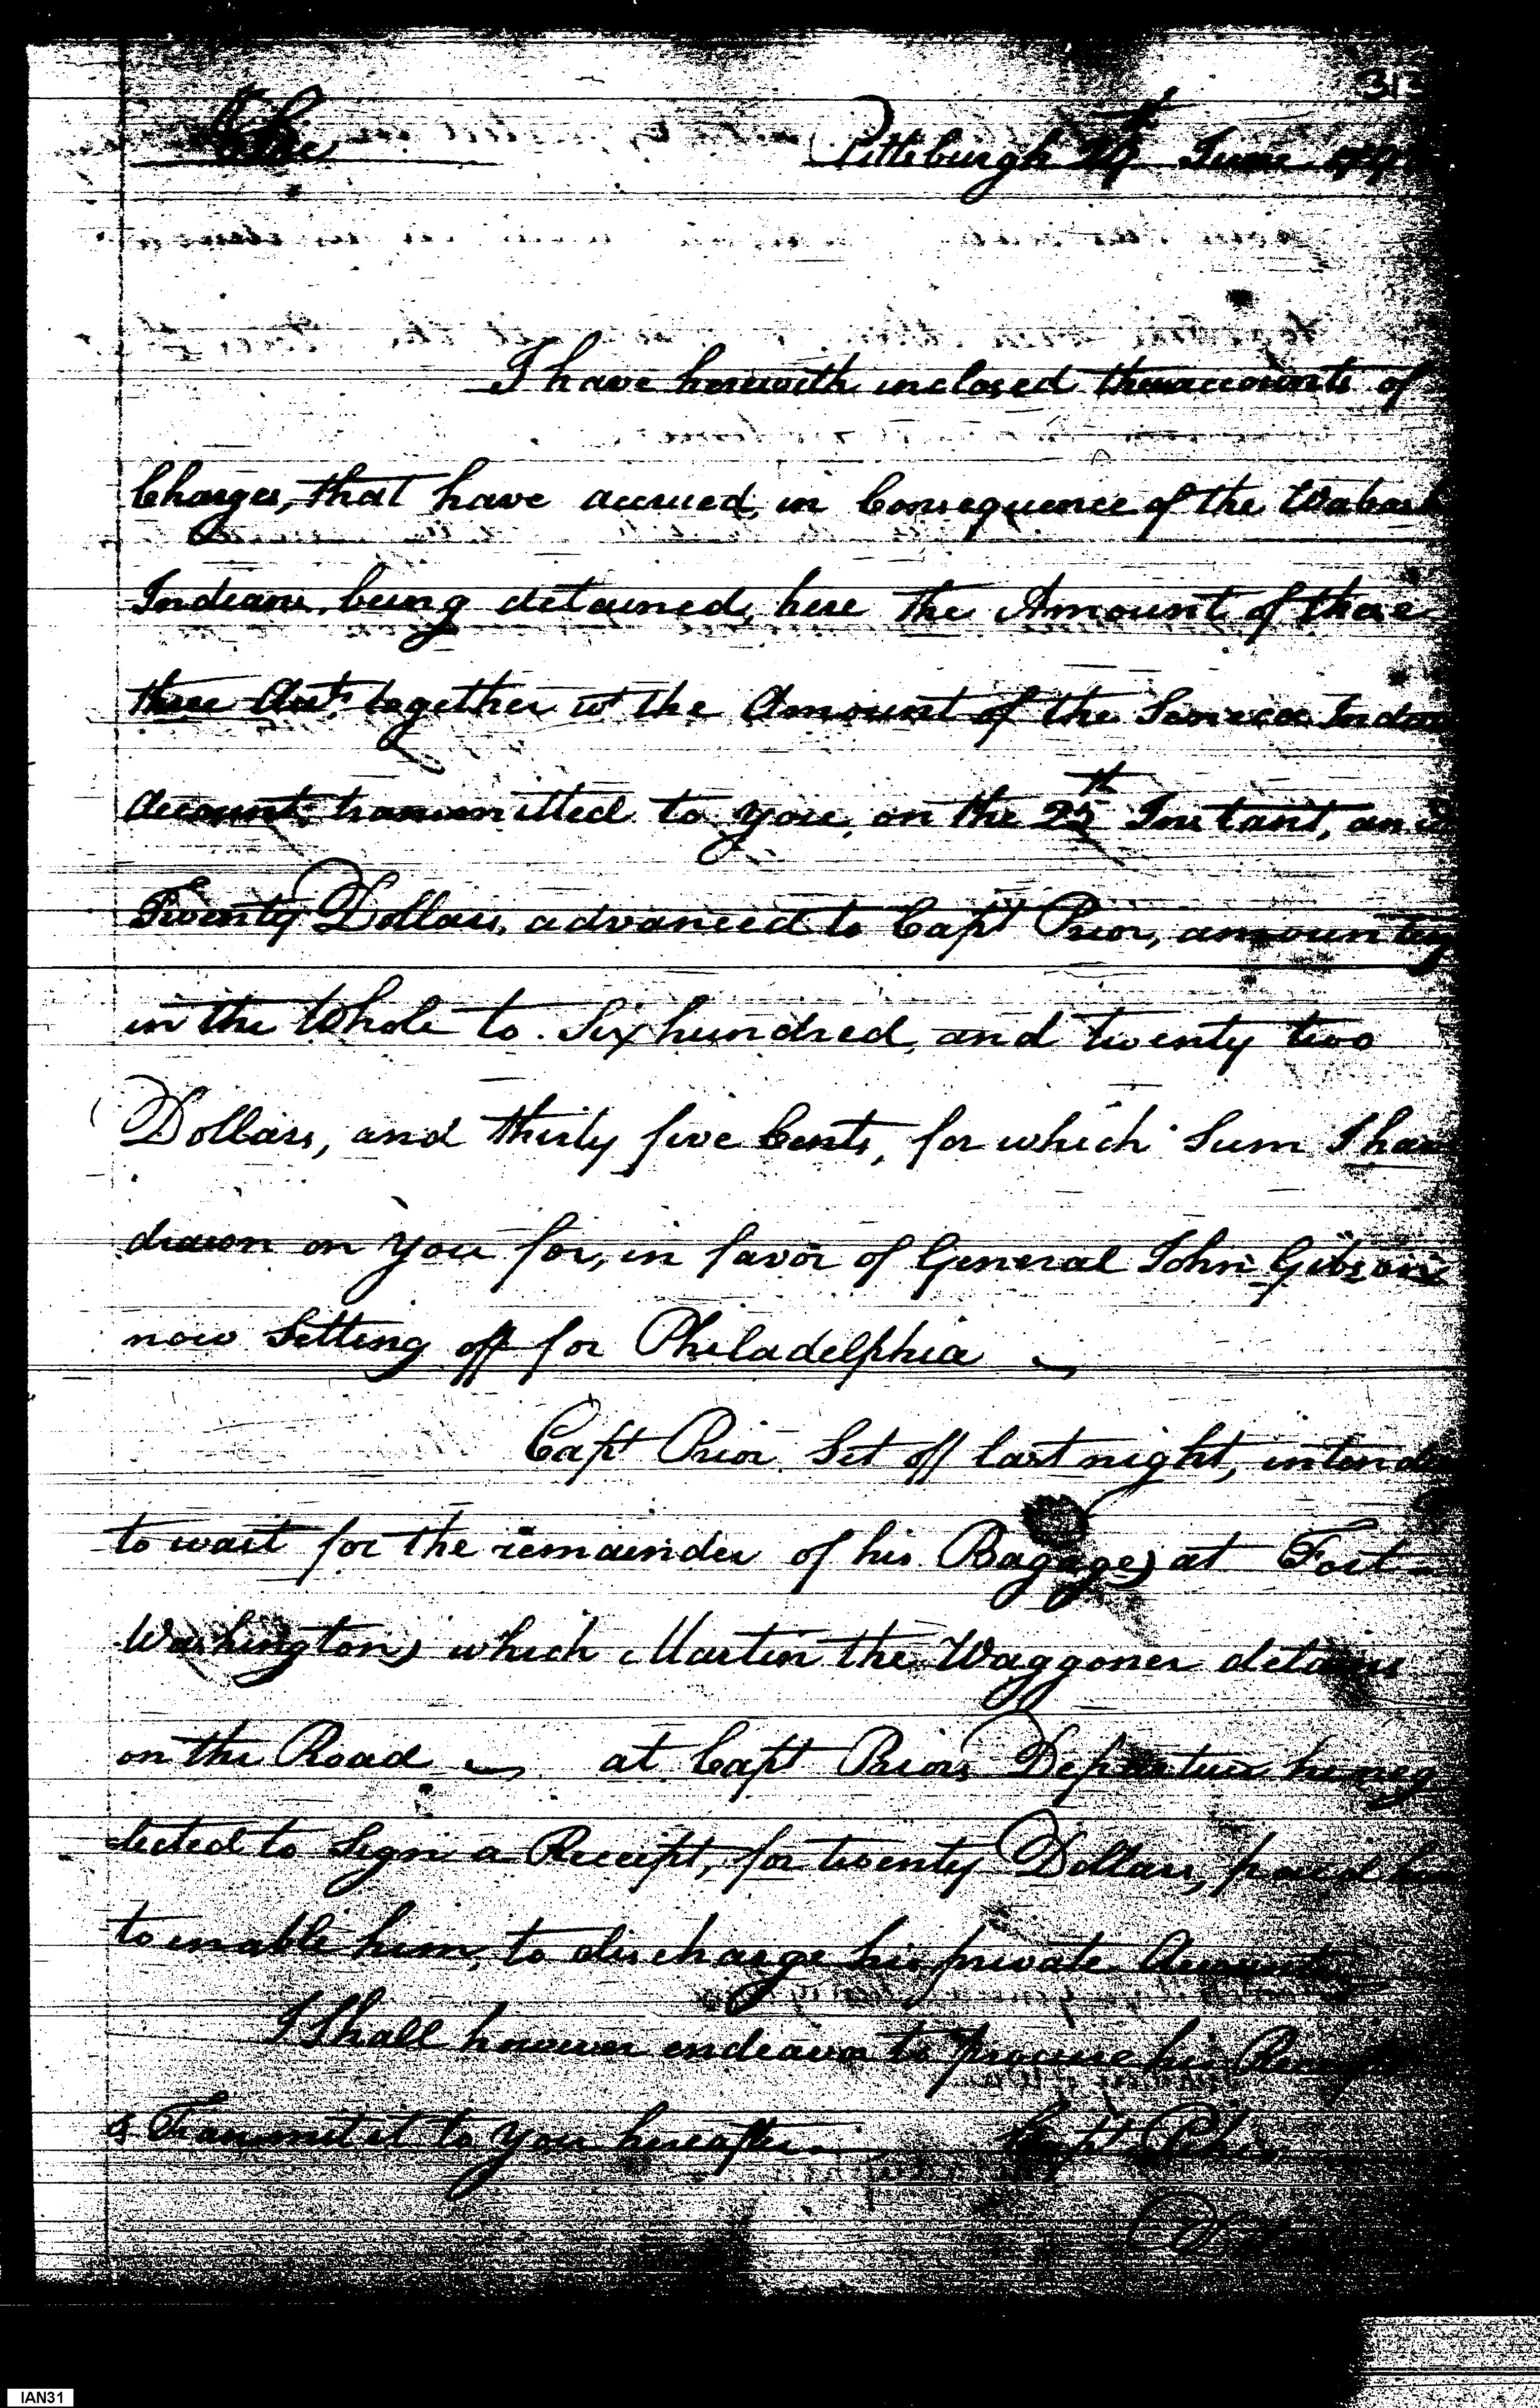 313
Sir Pittsburgh June
I have herewith inclosed three accounts of
Charges, that have accrued, in Consequence of the Wabash
Indians, being detained, here The Amount of these
three Acts. together wt the Amount of the Seneca Indian
Account, transmitted to you, on the 25th Instant, and
Twenty Dollars, advanced to Capt Prior, amounting
in the Whole to Six hundred, and twenty two
Dollars, and thirty five Cents, for which Sum I have
drawn on you for, in favor of General John Gibson
now Setting off for Philadelphia
Capt Prior. Set off last night, intends
to wait for the remainder of his Bagage) at Fort
Washington) which Martin the Waggoner detains
on the Road at Capt Priors Departure he neg
lected to Sign a Receipt, for twenty Dollars, paid him
to enable him, to discharge his private Accounts
I Shall however endeavor to procure his Receipt
& Transmit it to you hereafter Capt
IAN31